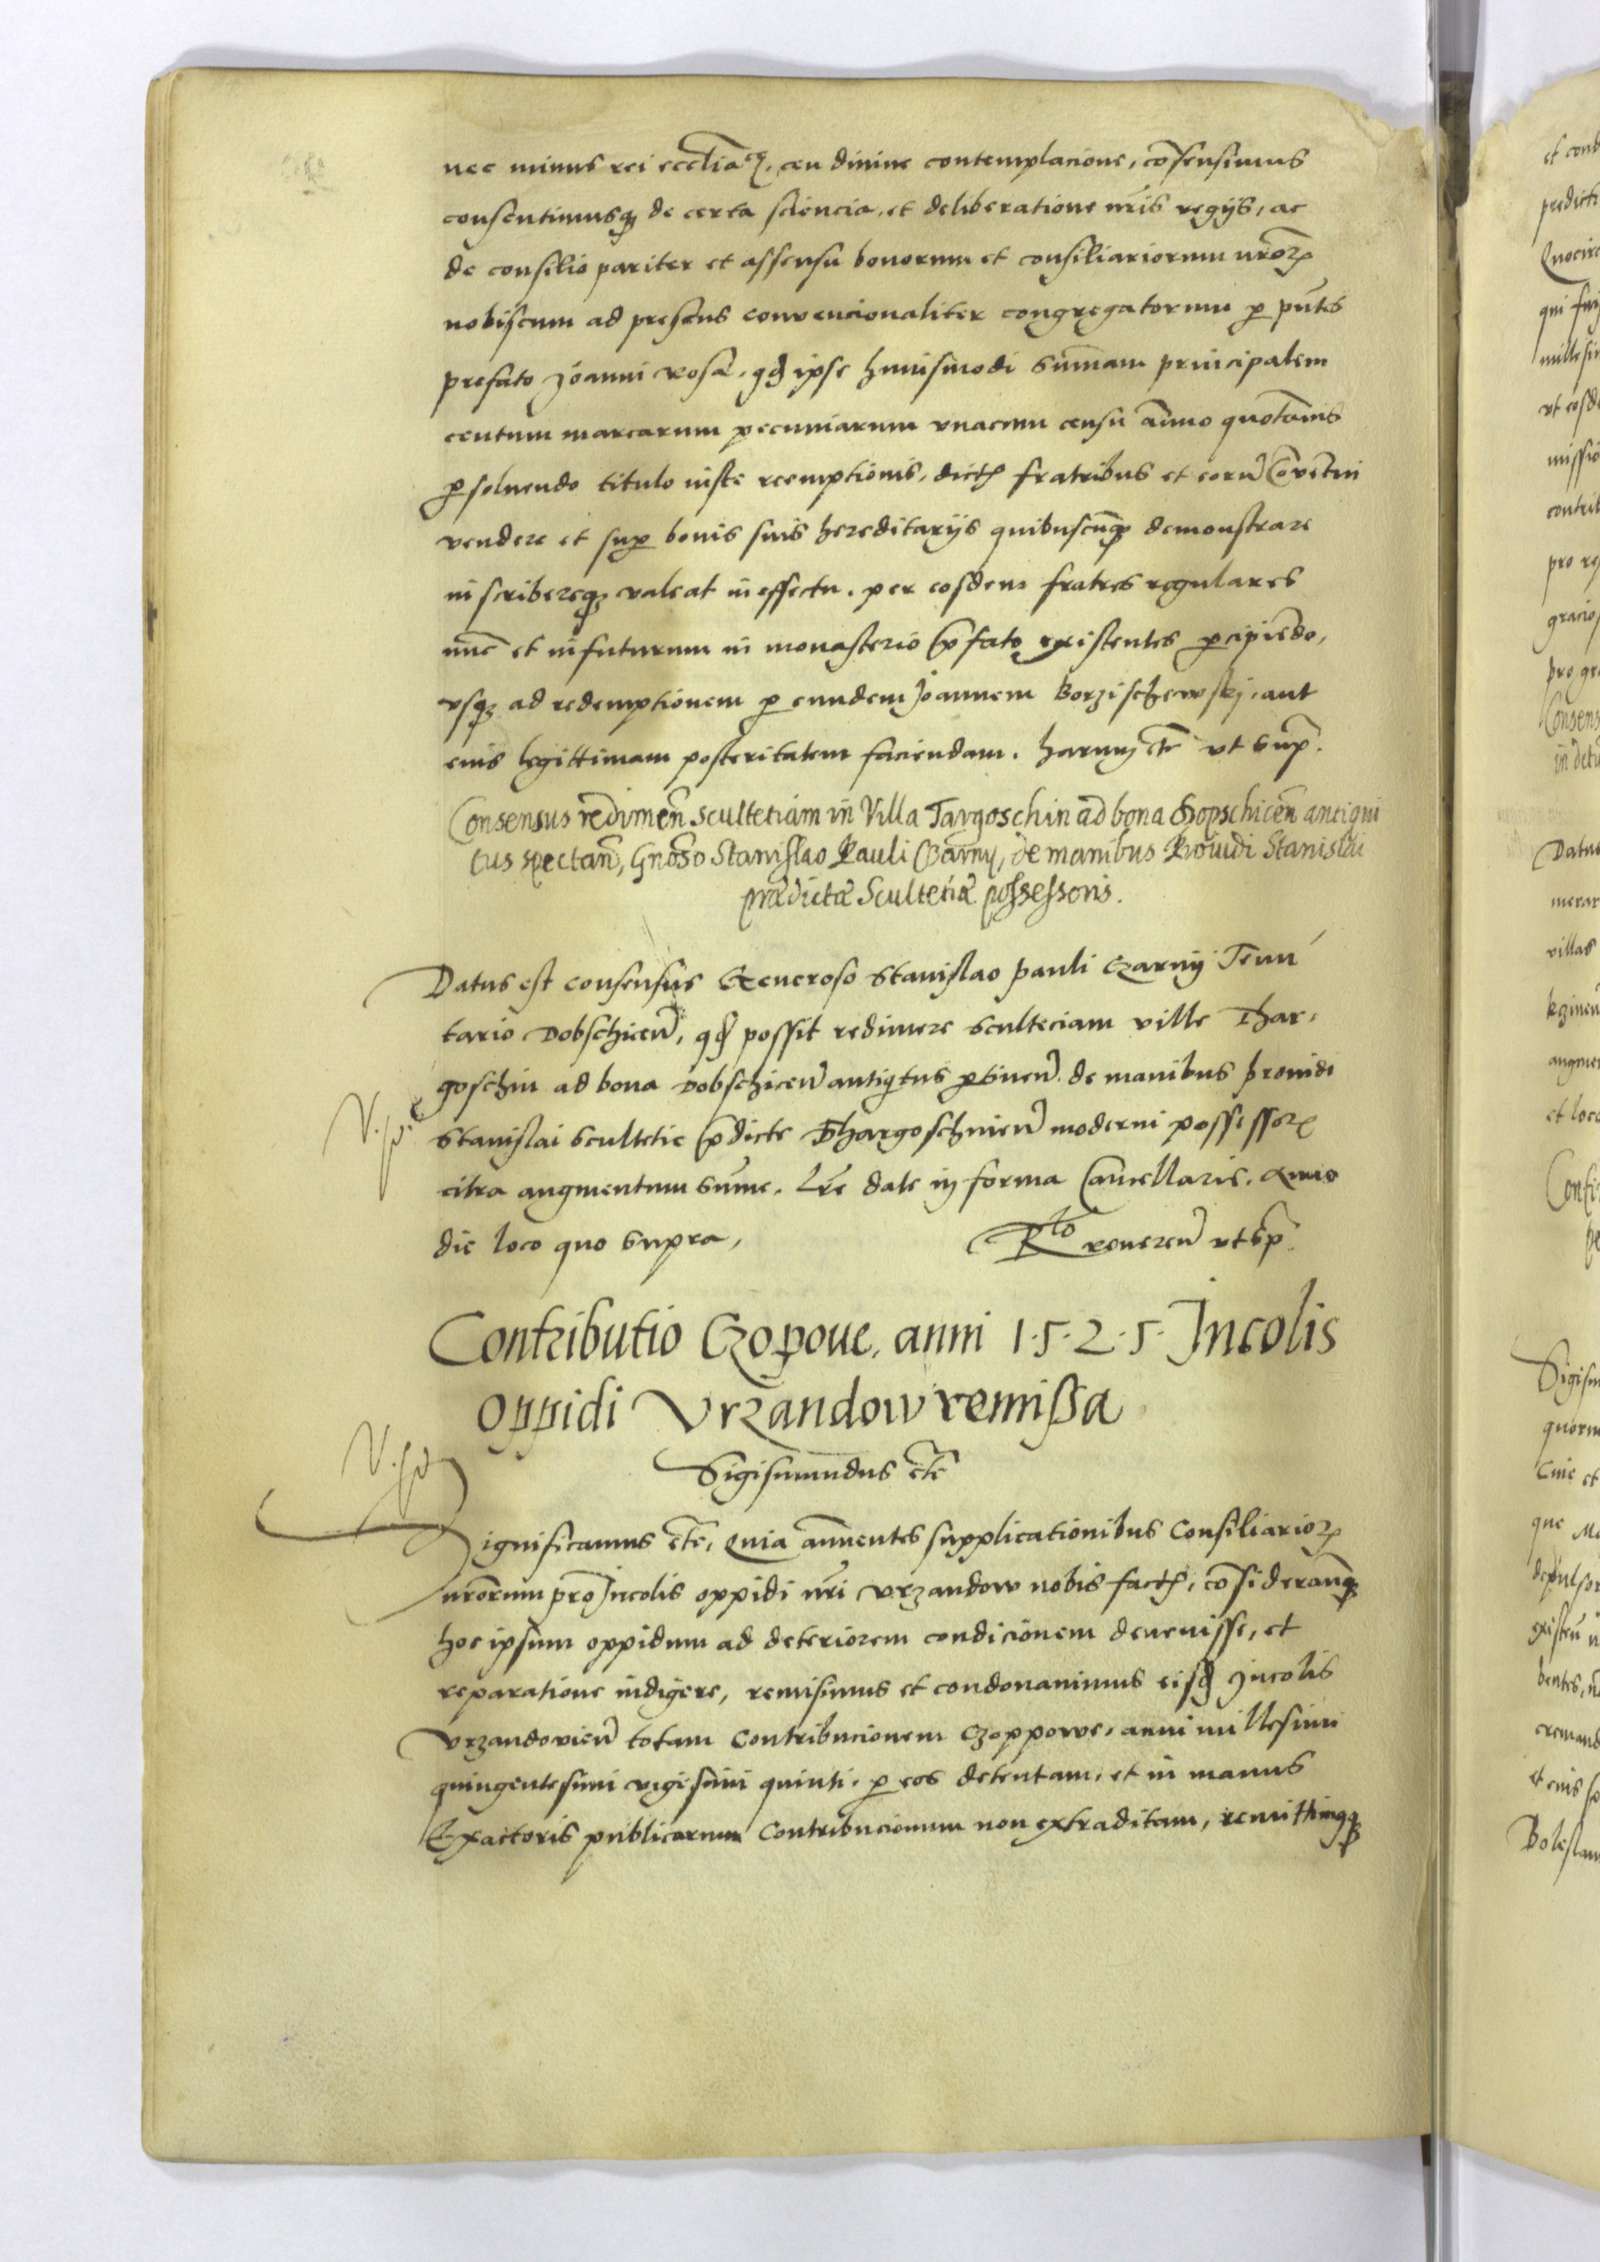 nec minus rei eccliastice, ceu divine contemplacione, cōsensimus
consentimusq de certa sciencia, et deliberatione nris regijs, ac
de consilio pariter et assensu bonorum et consiliariorum nrorz
nobiscum ad presens convencionaliter congregatorum p pntes
prefato Joanni Rosa, qd ipse huiusmodi summam principalem
centum marcarum pecuniarum vnacum censu annuo quotannis
psoluendo titulo iuste reemptionis, dictis fratribus et eorū Cōventui
vendere et sup bonis suis hereditarijs quibuscūq demonstrare
inscribereq valeat in effectu, per eosdem fratres regulares
nūc et infuturum in monasterio pfato existentes pcipiēdo,
vsq ad redemptionem p eundem Joannem Borzischewskj, aut
eius legittimam posteritatem faciendam. harum etc vt supͣ.
Consensus redimen̄ scultetiam in Villa Targoschin ad bona Dopschicen̄ antiqui
tus spectan̄, Gnōso Stanislao Pauli Czarny, de manibus Prouidi Stanislai
prædictæ Scultetiæ possessoris.
Datus est consensus Generoso Stanislao pauli Czarnij Tenu
tario Dobschicen̄, qd possit redimere sculteciam ville Thar,
goschin ad bona Dobschicen̄ antiqitus ptinen̄ de manibus prouidi
V. sp.
Stanislai scultetie pdicte Thargoschinen̄ moderni possessorz
citra augmentum sūme. Lre date in forma Cancellarie. Anno
die loco quo supra, Rlo reueren̄ vt sp.
Contributio Czopoue, anni 1.5.2.5. Incolis
oppidi Vrzandow remissa
Sigismundus etc
V. sp
Significamus etc, Quia annuentes supplicationibus Consiliariorz
nrorum pro Incolis oppidi nri Vrzandow nobis factis, cōsiderantesq
hoc ipsum oppidum ad deteriorem condicionem devenisse, et
reparatione indigere, remisimus et condonauimus eisd Incolis
Vrzandovien̄ totam Contribucionem Czoppowe, anni millesimi
quingentesimi vigesimi quinti, p eos detentam, et in manus
Exactoris publicarum Contribucionum non extraditam, remittimusq